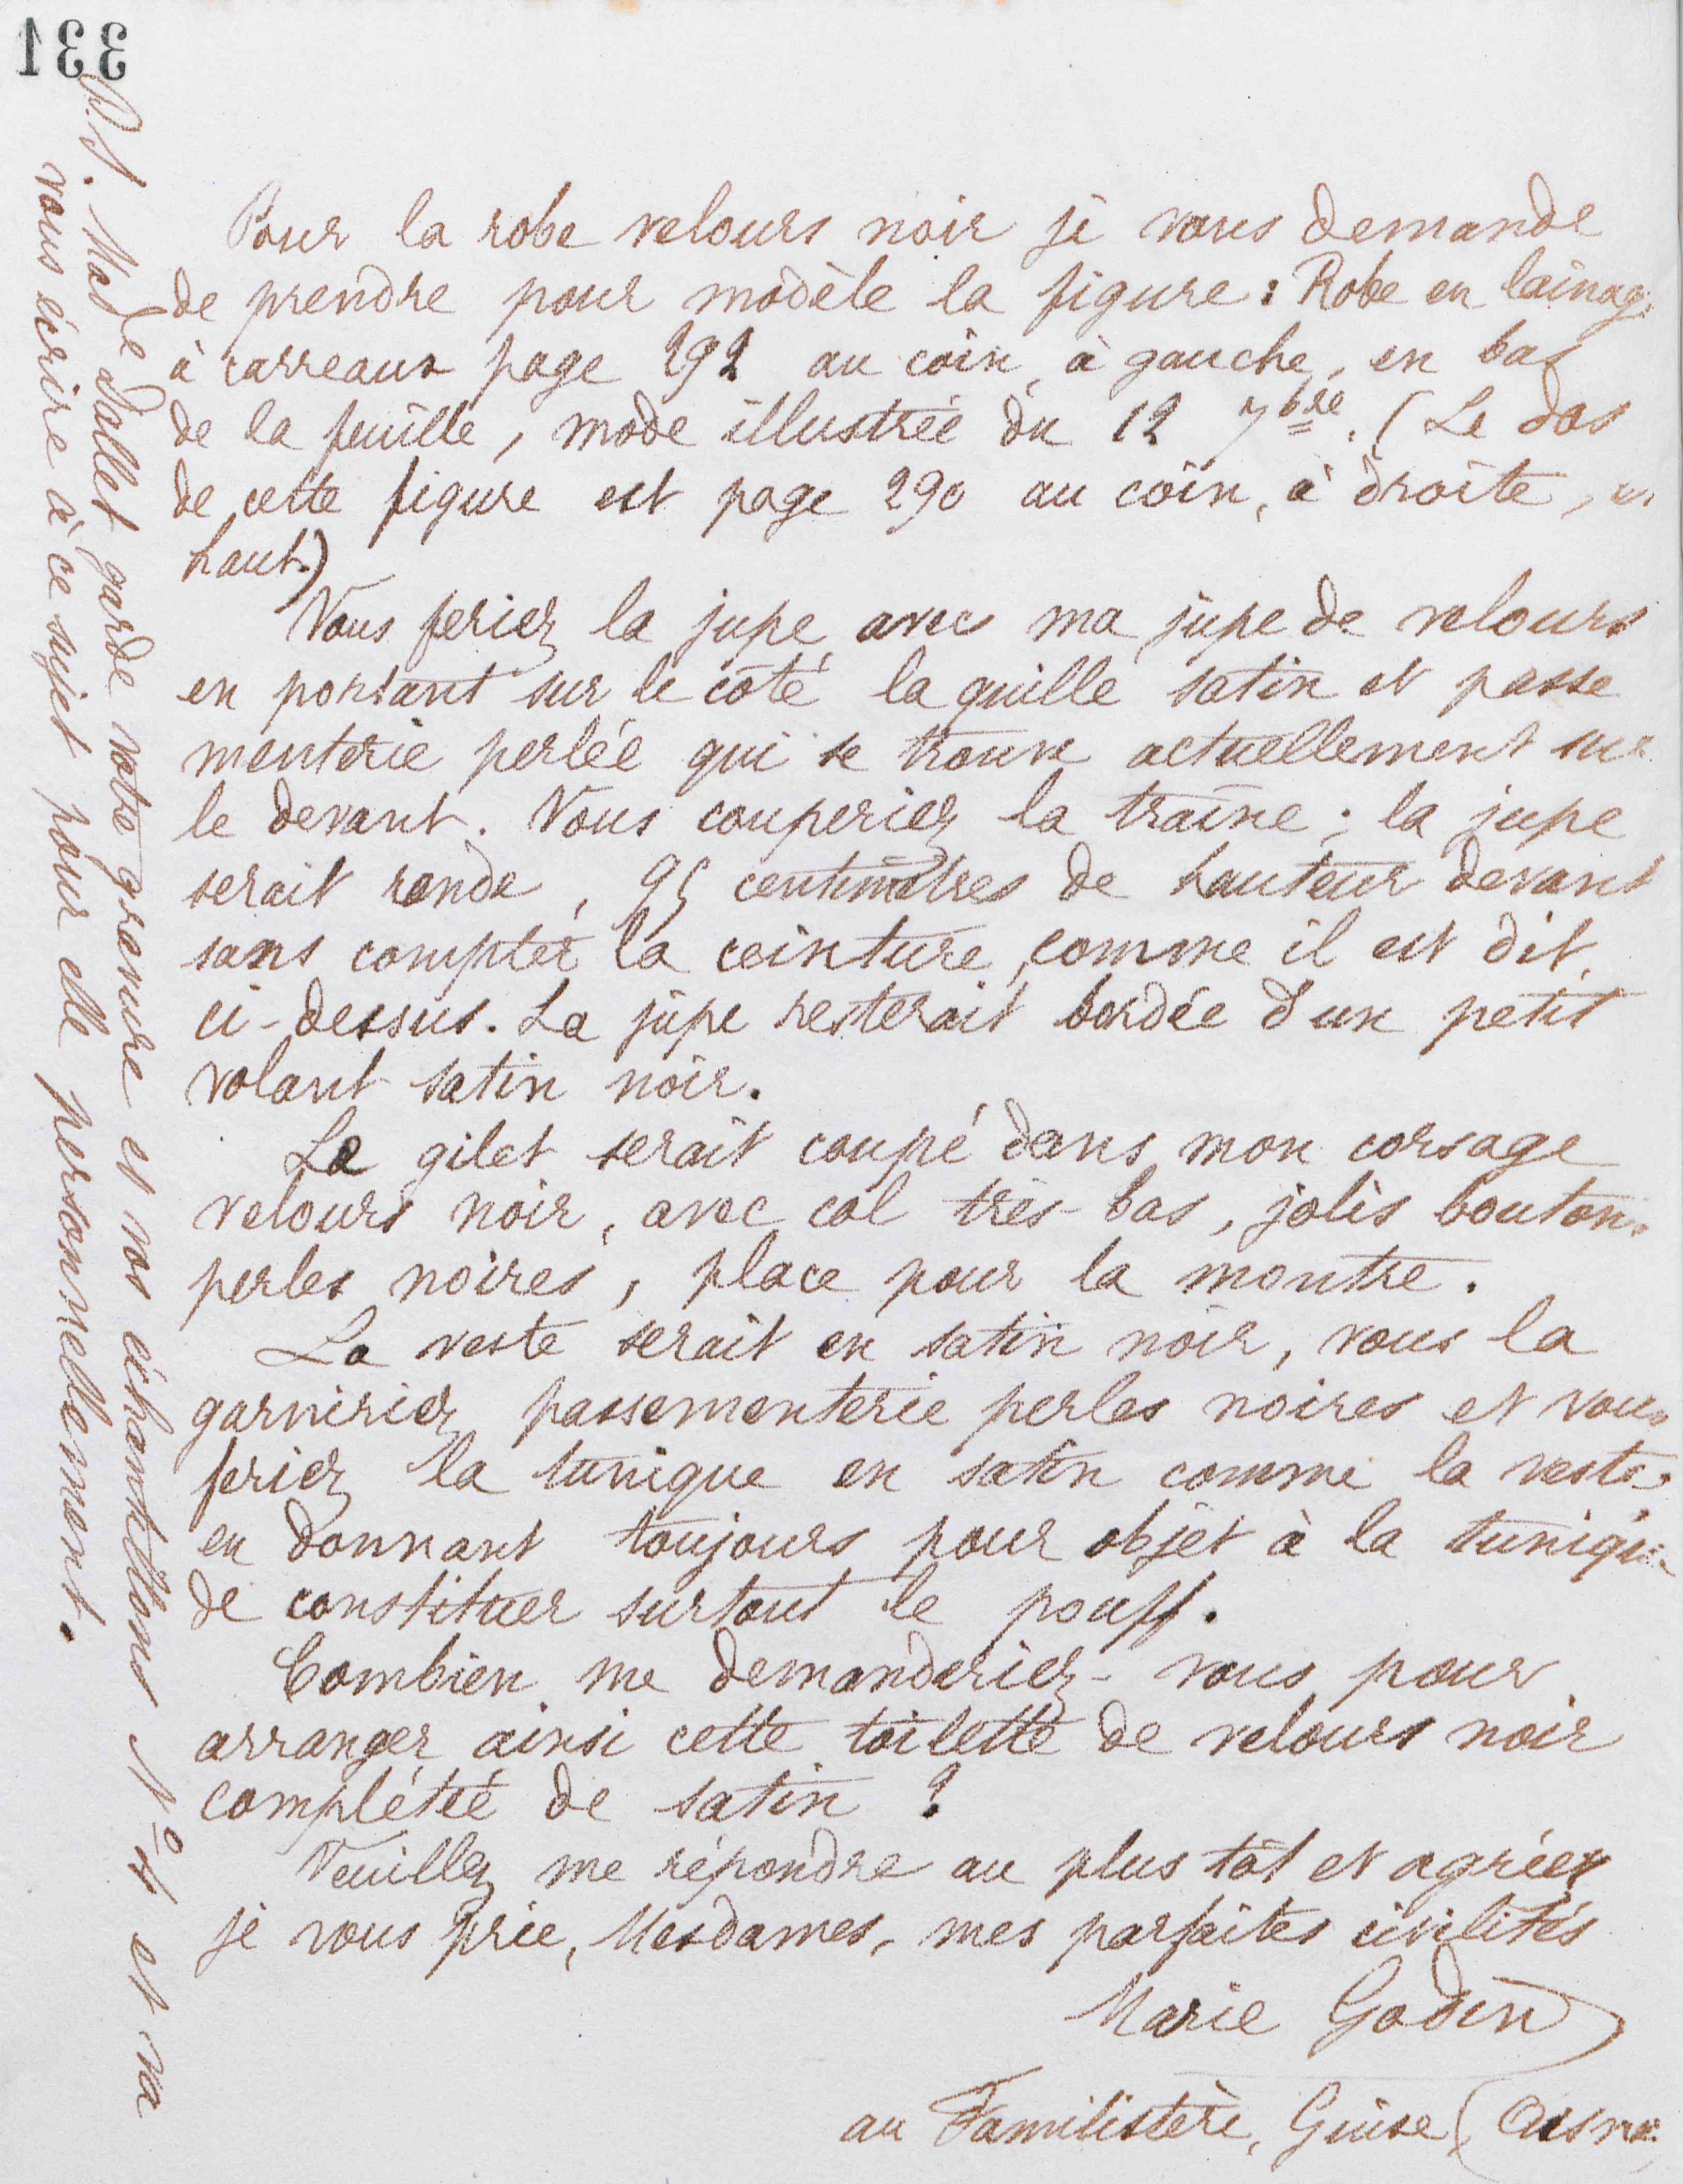 331
Pour la robe velours noir je vous demande
de prendre pour modèle la figure : Robe en lainage
à carreaux page 292 au coin, à gauche, en bas
de la feuille, mode illustrée du 12 7bre. (Le dos
de cette figure est page 290 au coin, à droite, en
haut.)
Vous feriez la jupe avec ma jupe de velours
en portant sur le côté la quille satin et passe
menterie perlée qui se trouve actuellement sur
le devant. Vous couperiez la traîne ; la jupe
serait ronde, 95 centimètres de hauteur devant
sans compter la ceinture, comme il est dit,
ci-dessus. La jupe resterait bordée d'un petit
volant satin noir.
Le gilet serait coupé dans mon corsage
velours noir, avec col très-bas, jolis boutons
perles noires, place pour la montre.
La veste serait en satin noir, vous la
garniriez passementerie perles noires et vous
feriez la tunique en satin comme la veste,
en donnant toujours pour objet à la tunique
de constituer surtout le pouff.
Combien me demanderiez-vous pour
arranger ainsi cette toilette de velours noir
complétée de satin ?
Veuillez me répondre au plus tôt et agréer
je vous prie, Mesdames, mes parfaites civilités
Marie Godin
au Familistère, Guise (Aisne)
P.S. Made Dallet garde votre gravure et vos échantillons No 4 et va
vous écrire à ce sujet pour elle personnellement.